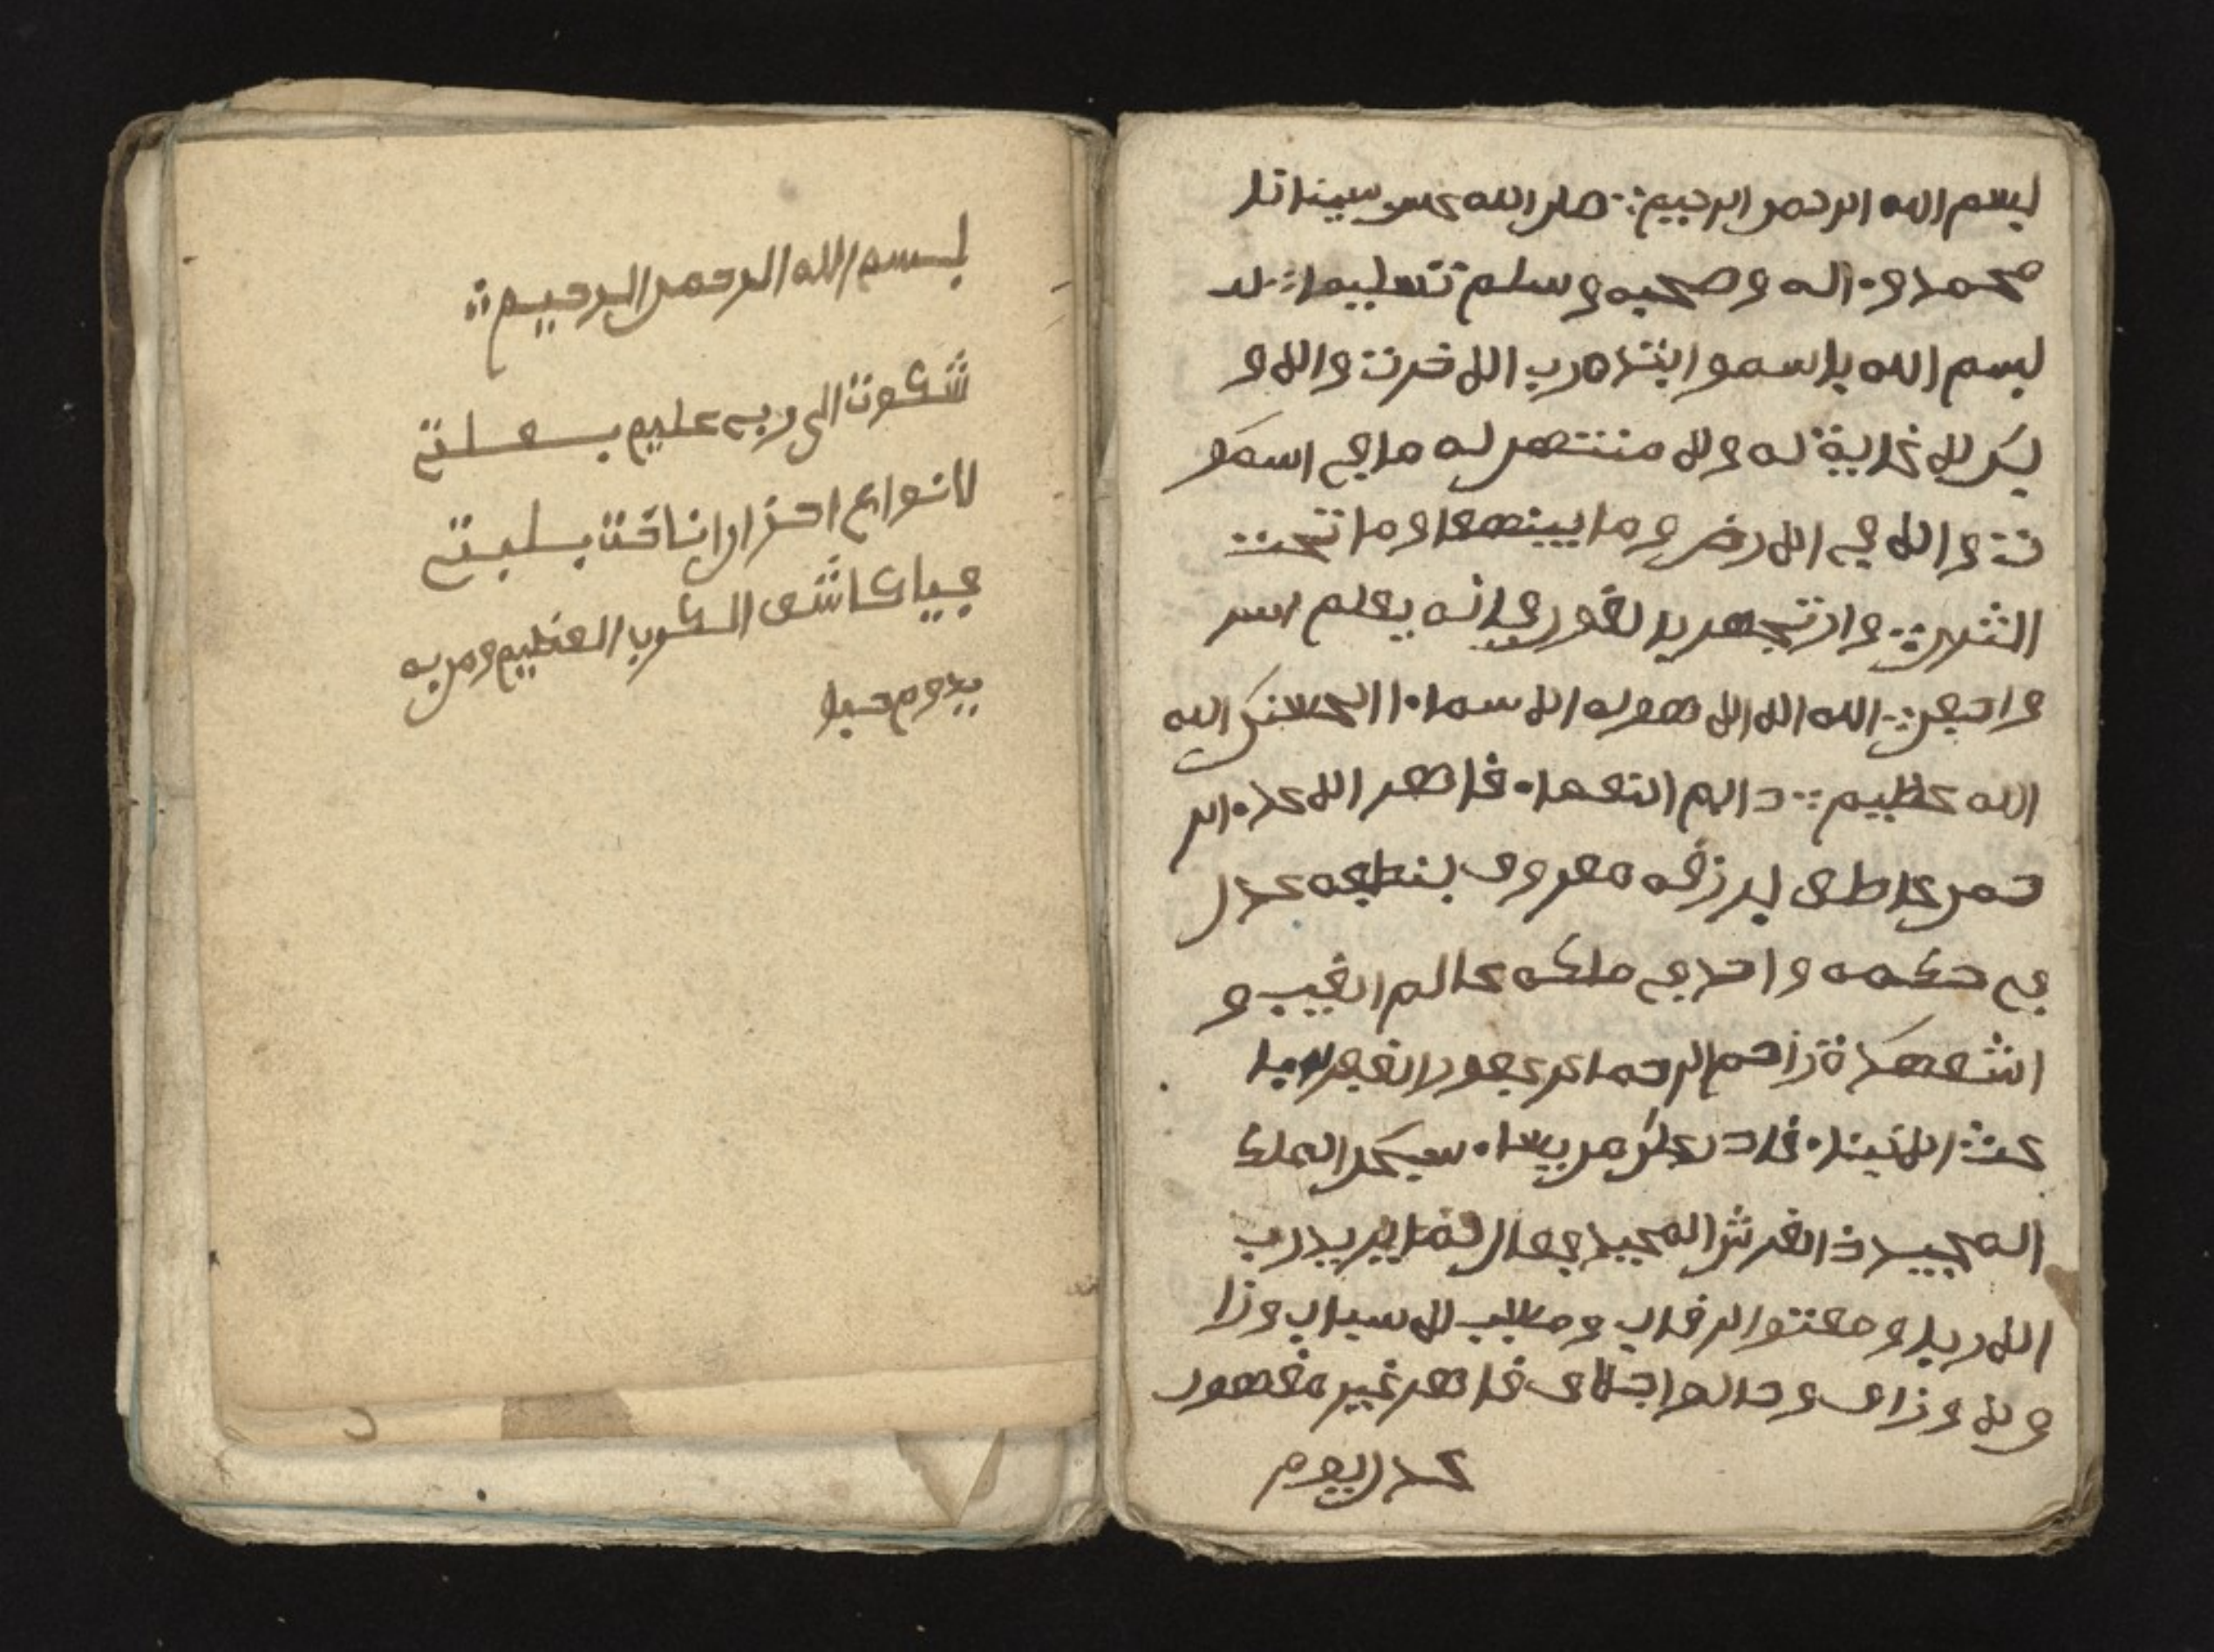 بسم الله الرحمن الرحيم صل الله على سيدنا
محمد وءاله وصحبه وسلم تسليما
بسم الله باسمو ابتداء رب الاخرت والاو
لى لا غاية له ولا منتهى له ما في السمو
ت والا في الارض وما بينهما وما تحت
الثرى وان تجهر بالقول فانه يعلم السر
واخفى الله الا الا هو له الاسماء الحسنى الله
الله عظيم دايم النعماء قاهر الاعداء الر
حمن عاطف برزقه معروف بلطفه عدل
في حكمه واحد في ملكه عالم الغيب و
الشهدة راحم الرحما غفور الغفر
عث الانبياء قادر على من يشاء الملك
المجيد ذا العرش المجيد فعال لما يريد رب
الارباب ومعتق الرقاب ومسبب الاسباب ورا
قاهر غير مقهور
عدل يوم
بسم الله الرحمن الرحيم
شكوت الى ربي عليم بعلتي
لانواع احزان اناخت ببليتي
فيا كاشف الكرب العظيم ومن به
يدوم حيا